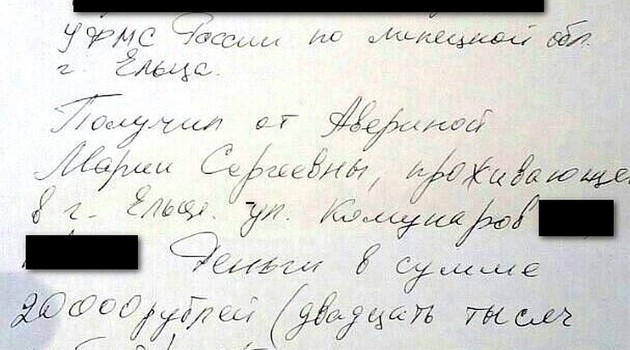 УФМС России по Липецкой обл.
г. Ельца.
Получил от Авериной
Марии Сергеевны, проживающе
в г. Ельце. ул. Комунаров
Деньги в сумме
20000 рублей (двадцать тысяч